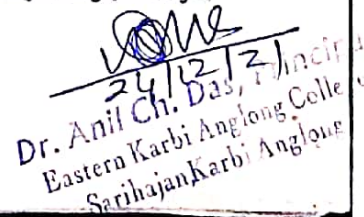 24/12/21
Dr. Anil Ch. Das,
Eastern Karbi Anglong Colle
Sarihajan Karbi Anglong